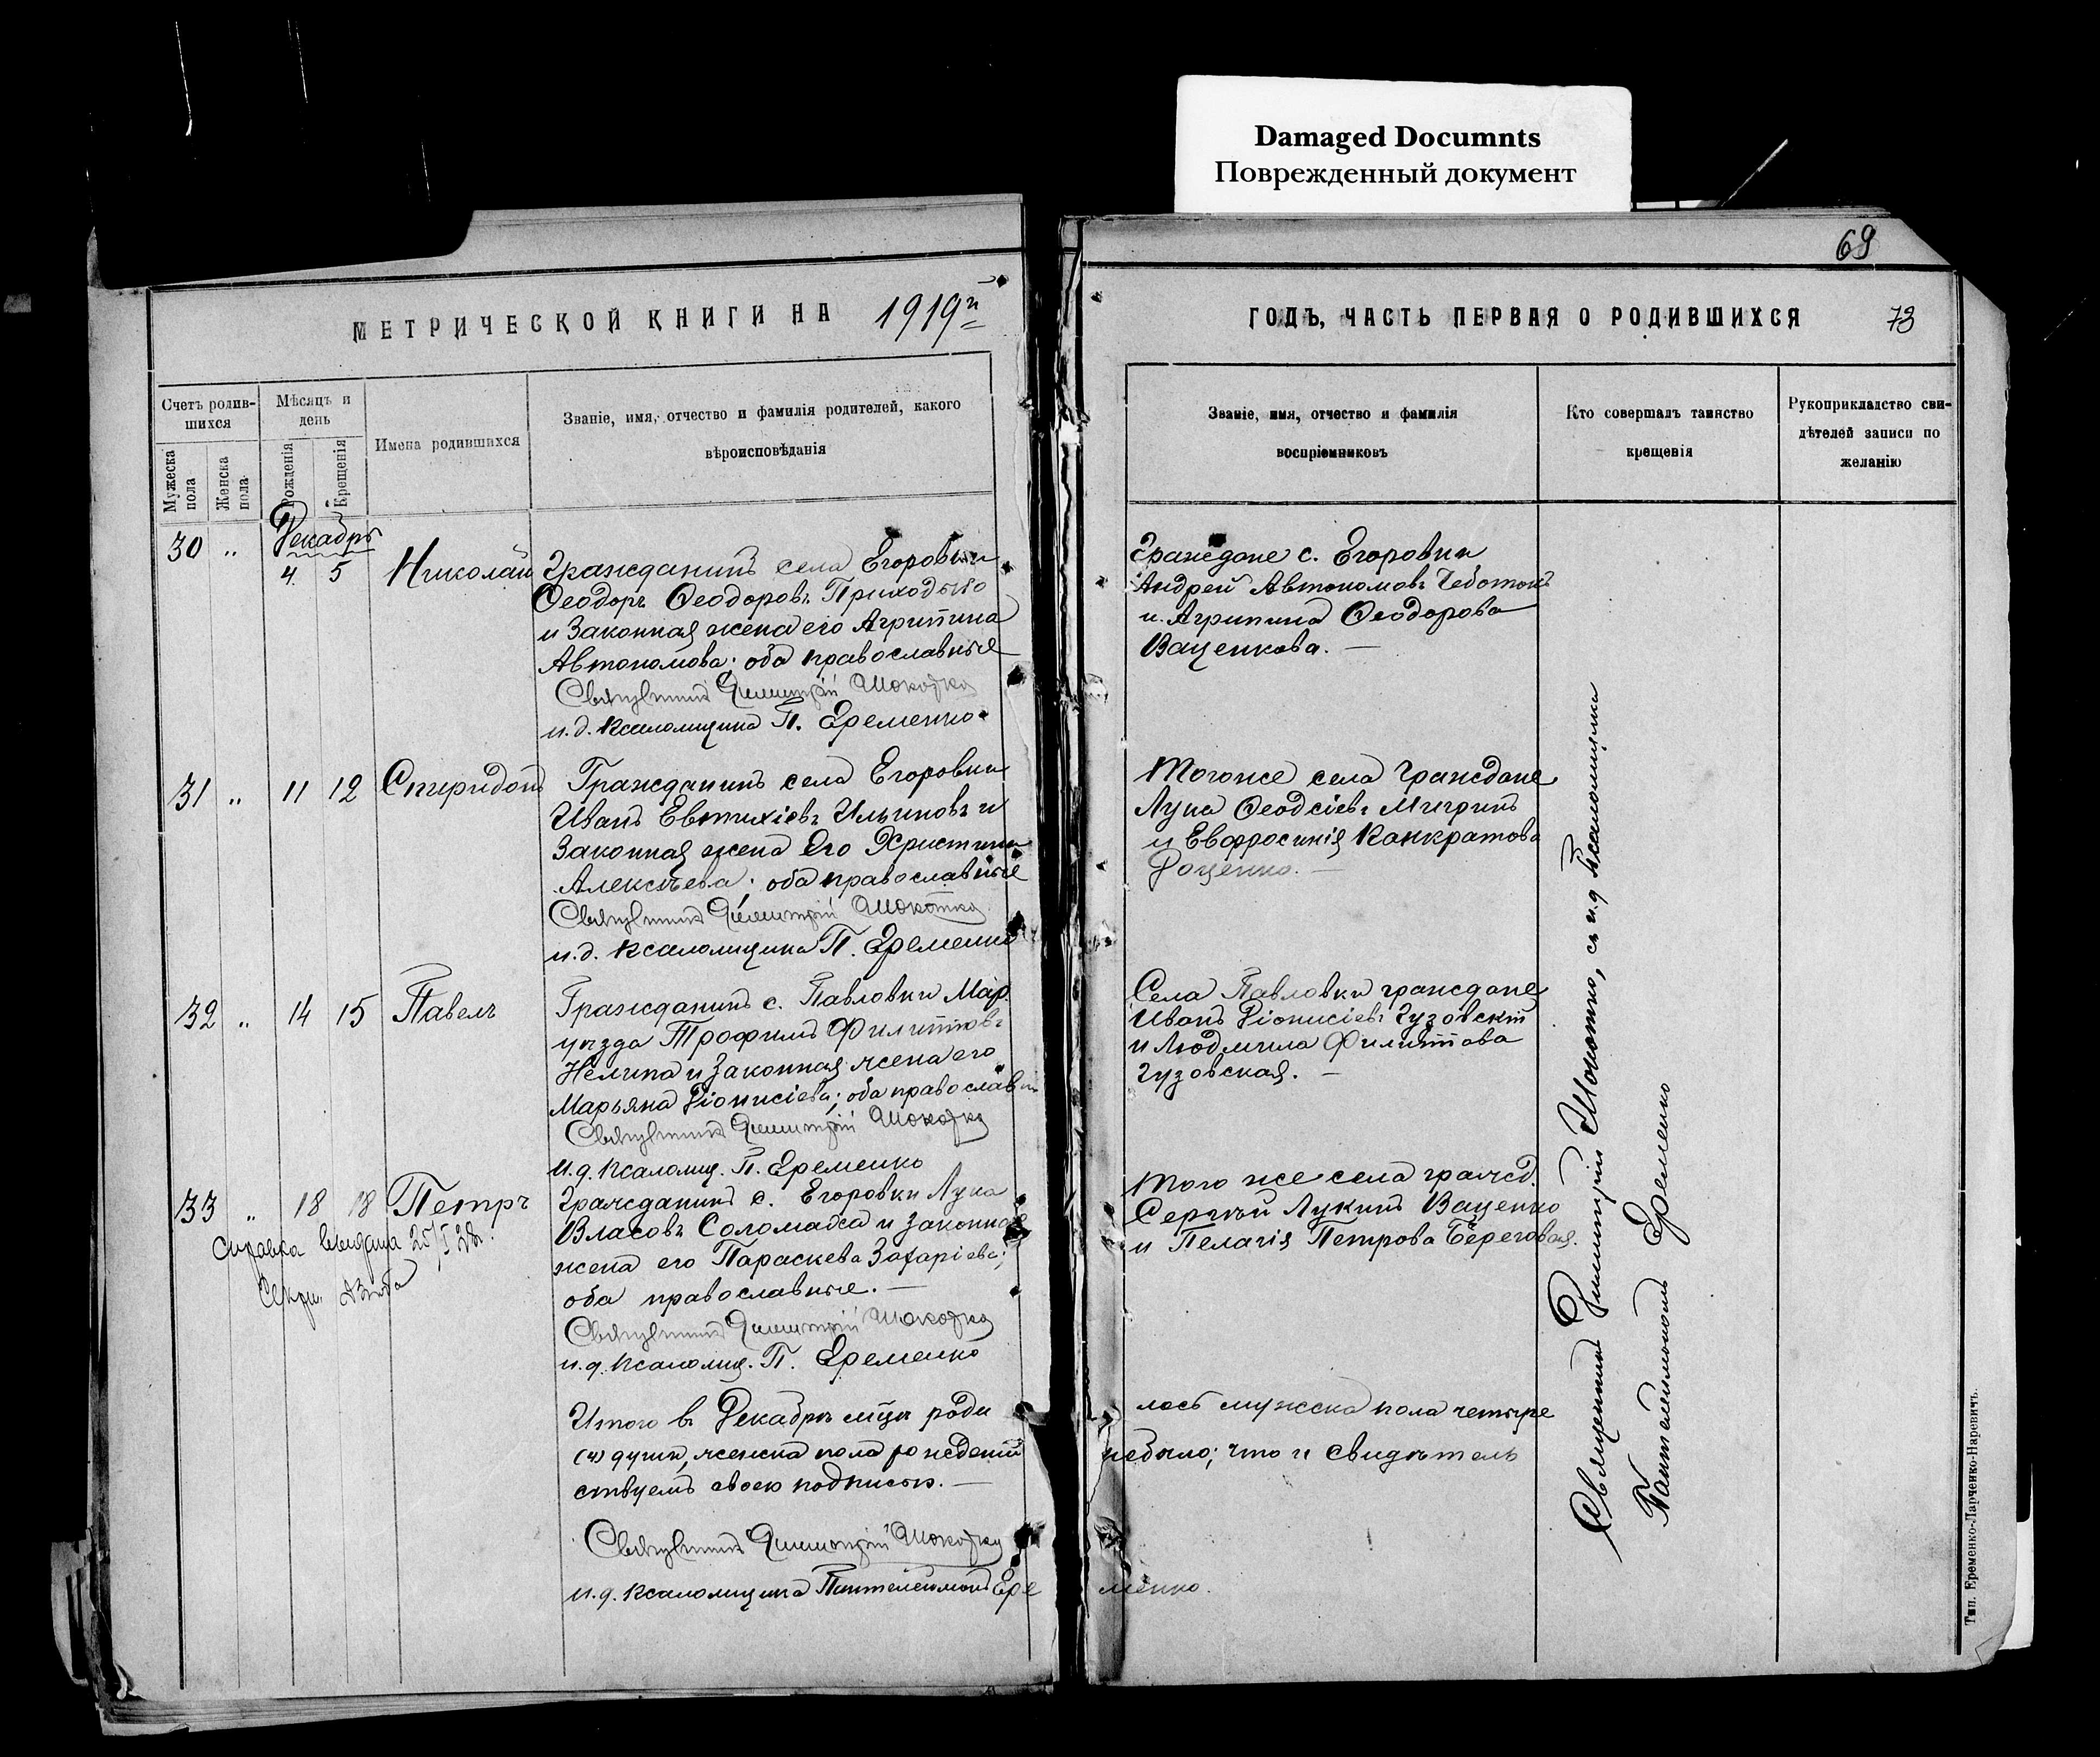 Damaged Documnts
Поврежденный документ
69
МЕТРИЧЕСКОЙ КНИГИ НА 1919й
Счетъ родив-
шихся
Мужеска
пола
Женска
пола
Мѣсяцъ и
день
Рожденія
Крещенія
Имена родившихся
Званіе, имя, отчество и фамилія родителей, какого
вѣроисповѣданія
30 „ Декабрь
4. 5 Николай Гражданинъ села Егоровки
Ѳеодоръ Ѳеодоровъ Приходько
и законная жена его Агрипина
Автономова; оба православные
Священникъ Димитрій Шокотко
и.д. псаломщика П. Еременко
31 „ 11 12 Спиридонъ Гражданинъ села Егоровки
Иванъ Евтихіевъ Ильиновъ и
законная жена его Христина
Алексѣева; оба православные
Священникъ Димитрій Шокотко
и.д. псаломщика П. Еременко
32 „ 14 15 Павелъ Гражданинъ с. Павловки Мар.
уѣзда Трофимъ Филипповъ
Нелипа и законная жена его
Марьяна Діонисіева; оба православн
Священникъ Димитрій Шокотко
И.д. псаломщ. П. Еременко
33 „ 18 18 Петръ Гражданинъ с. Егоровки Лука
Власовъ Соломаха и законная
жена его Параскева Захаріева;
оба православные. —
Священникъ Димитрій Шокотко
и.д. псаломщ. П. Еременко
Справка выдана 25/I
Секр.
Итого въ Декабрѣ мцѣ роди
(4) души, женска пола рожденій
ствуемъ своею подписью. —
Священникъ Димитрій Шокотко
и.д. псаломщика Пантелеимонъ Ере
ГОДЪ, ЧАСТЬ ПЕРВАЯ О РОДИВШИХСЯ 73
Званіе, имя, отчество и фамилія
воспріемниковъ
Кто совершалъ таинство
крещенія
Рукоприкладство сви-
дѣтелей записи по
желанію
Граждане с. Егоровки
Андрей Автономовъ Чеботокъ
и Агрипина Ѳеодорова
Ваценкова. —
Тогоже села граждане
Лука Ѳеодсіевъ Мигринъ
и Евфросинія Панкратова
Доценко. —
Села Павловки граждане
Иванъ Діонисіевъ Гузовскій
и Людмила Филиппова
Гузовская. —
Того же села гражд.
Сергѣй Лукинъ Ваценко
и Пелагія Петрова Береговая.
лось мужска пола четыре
небыло; что и свидѣтель
менко.
Священникъ Димитрій Шокотко, съ и.д. Псаломщика
Пантелеимономъ Еременко
Тип. Еременко-Ларченко-Наревичъ.